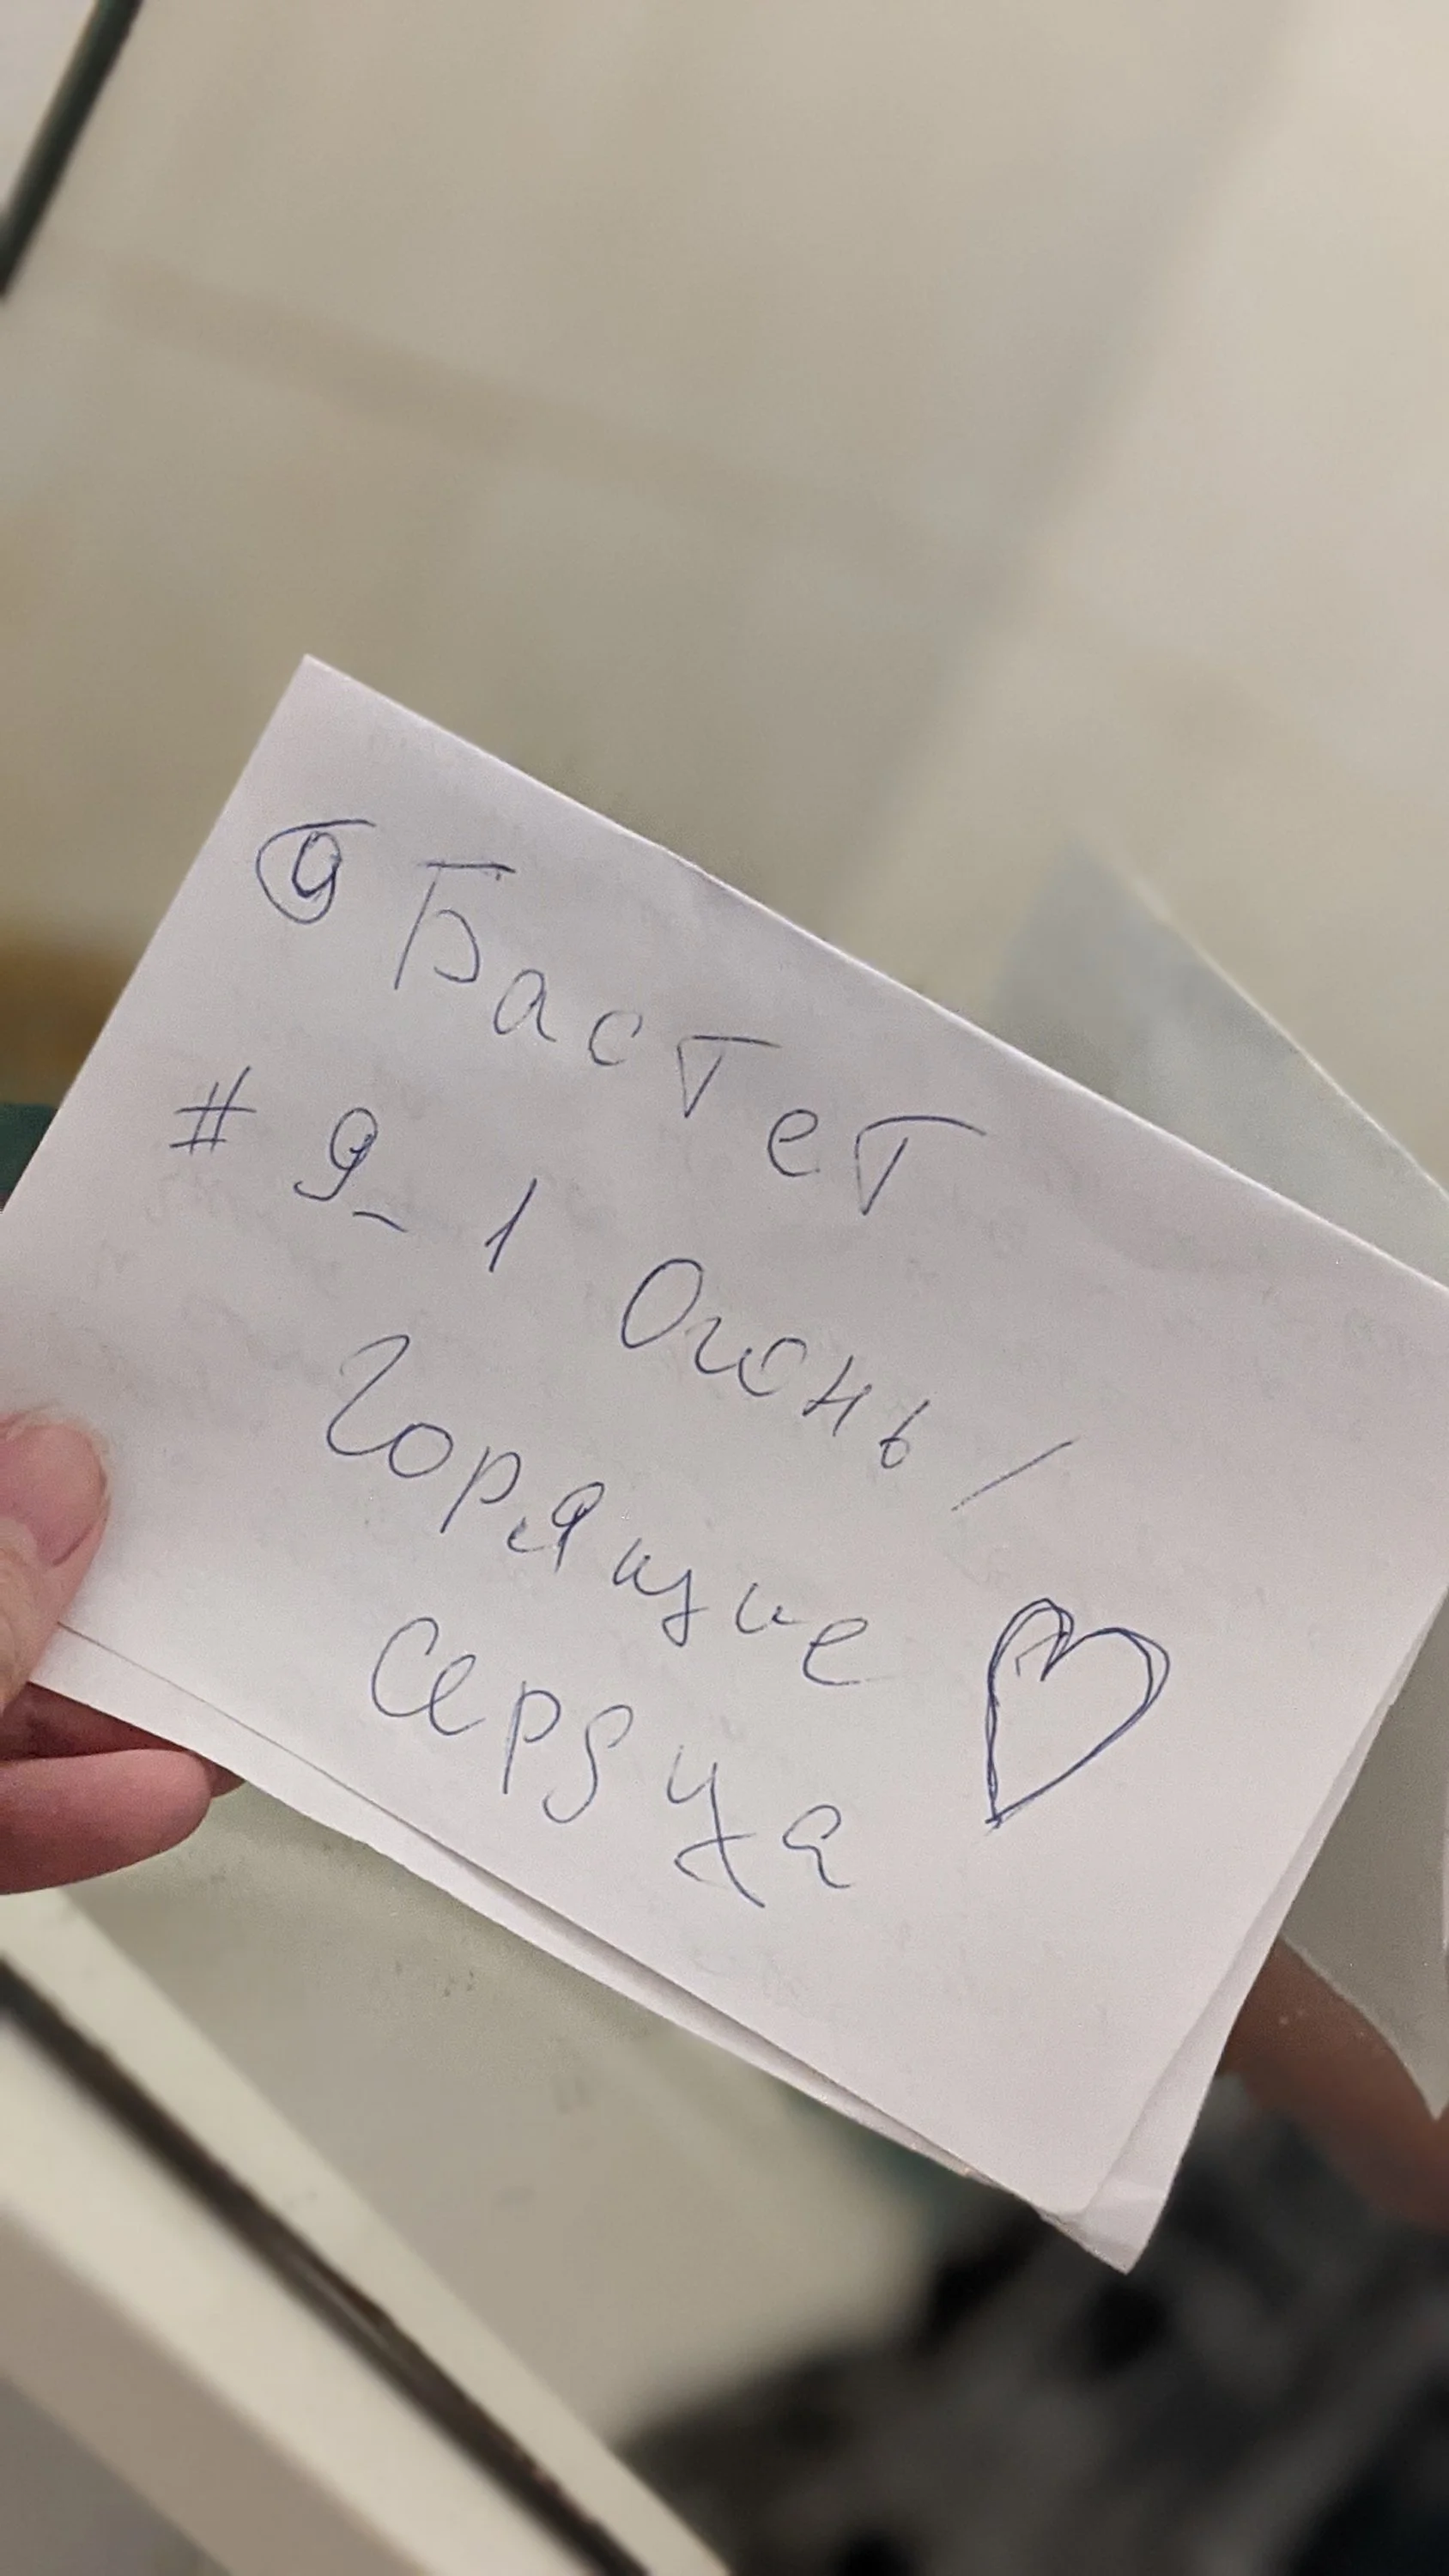 @Бастет
# 9_1 Огонь/
Горящие
сердца